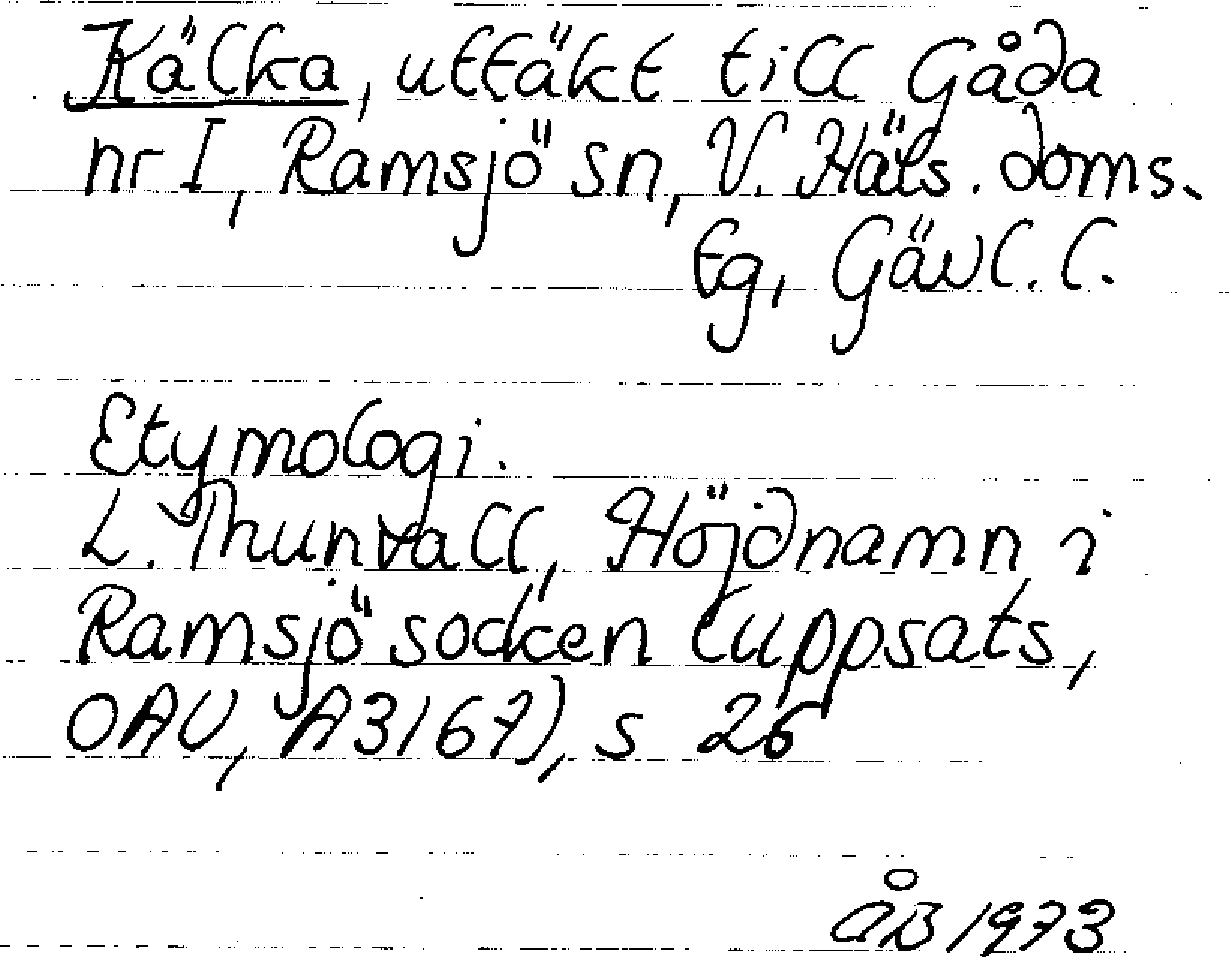 Kälka, uttäkt till Gåda
nr I, Ramsjö sn, V. Häls. doms.
tg, Gävl. l.
Etymologi.
L. Thunvall, Höjdnamn i
Ramsjö socken (uppsats,
OAU, A3167), s 26
ÅB 1973